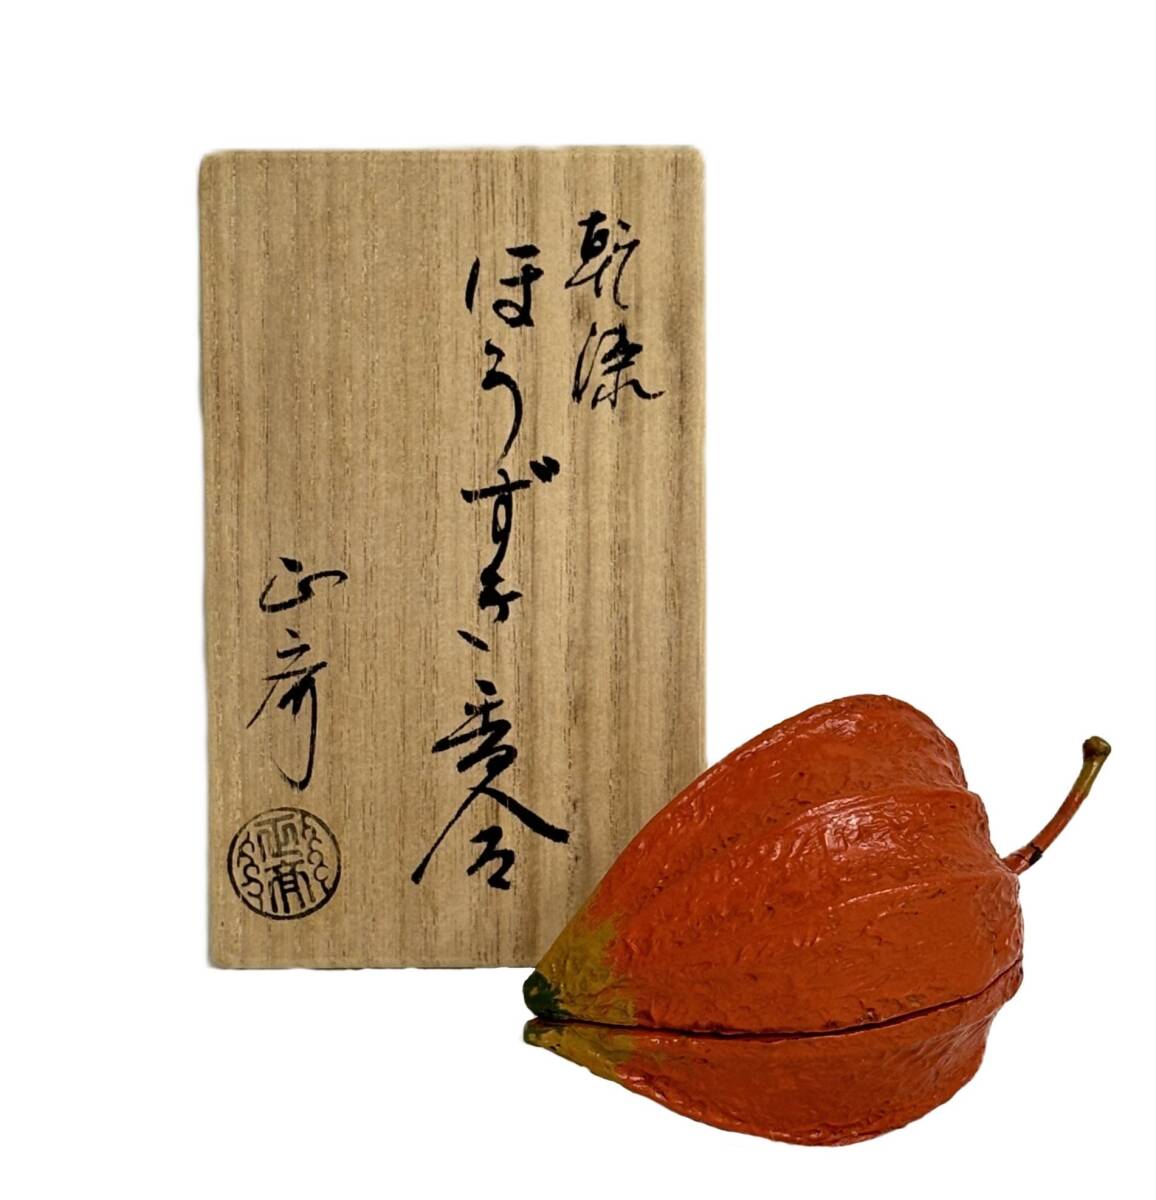 乾漆
ほうずき香合
正斎
正斎